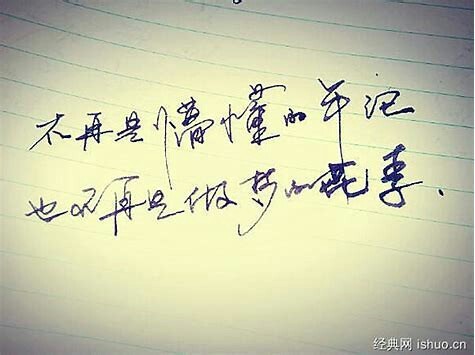 不再是懵懂的年记
也不再是做梦的花季、
经典网 ishuo.cn